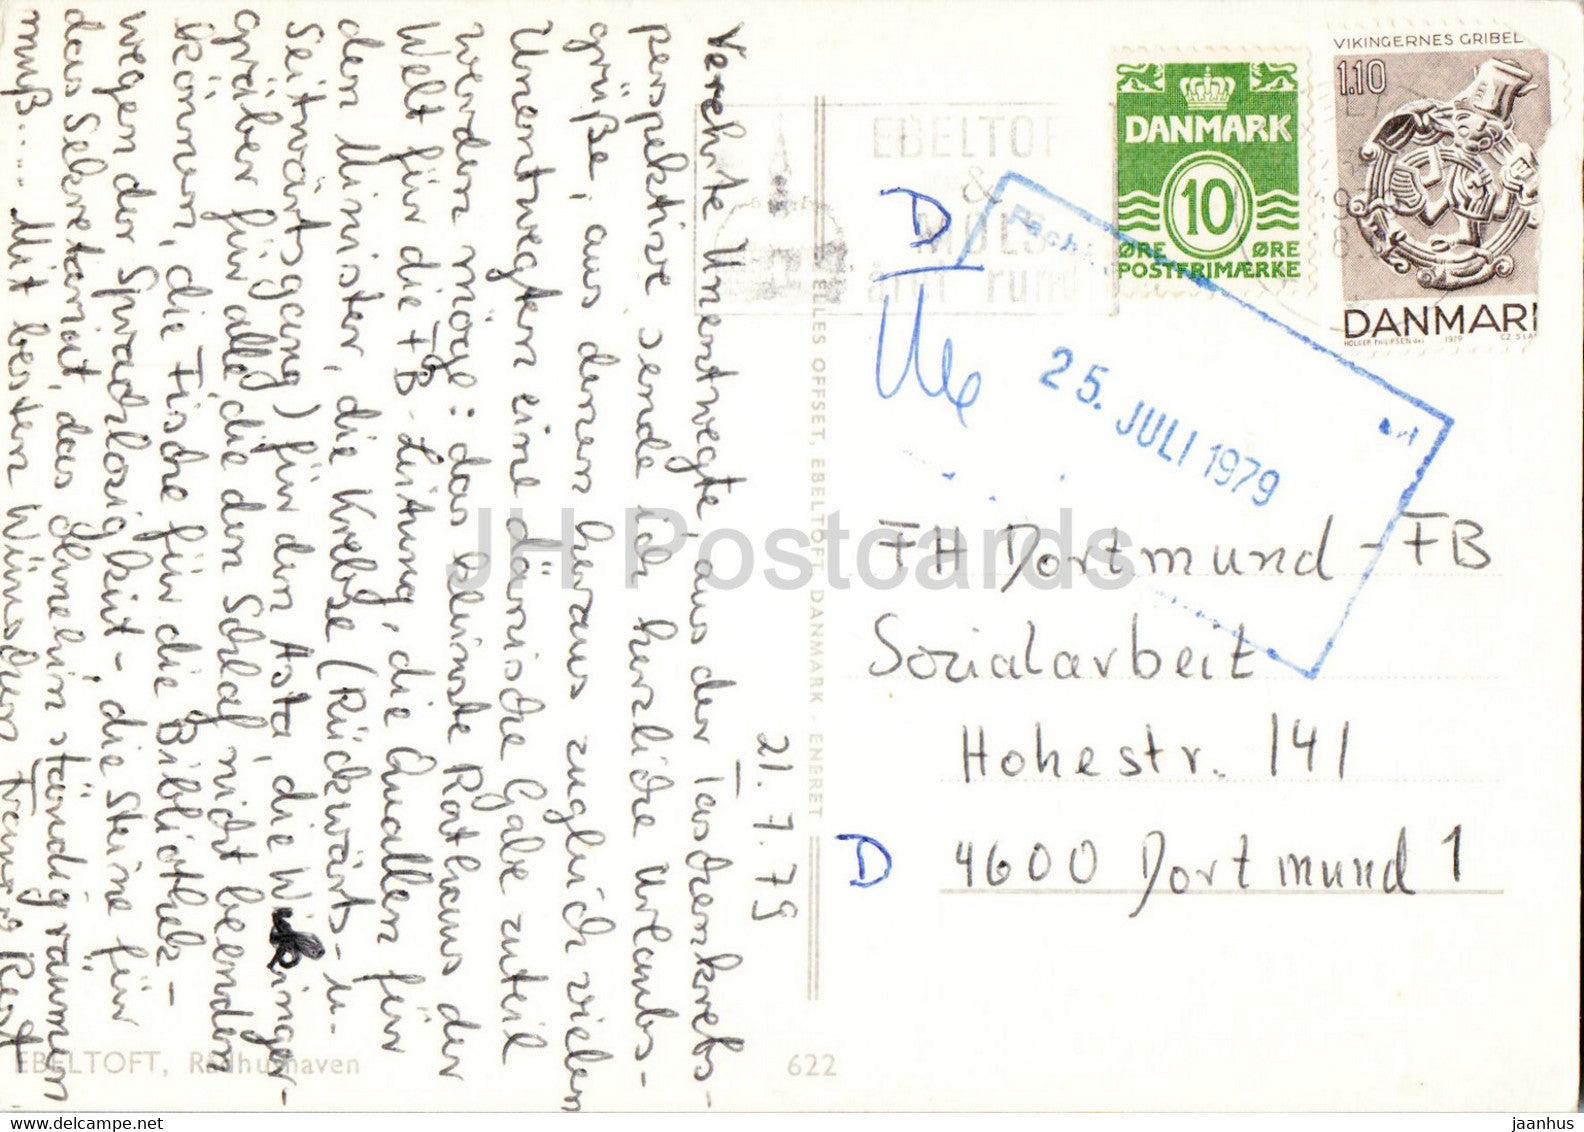 21.7.79
Verehrte Unentwegte, aus der Taschenkrebs-
perspektive sende ich herzliche Urlaubs-
grüße, aus denen heraus zugleich vielen
Unentwegten eine dänische Gabe zuteil
werden möge: das kleinste Rathaus der
Welt für die FB-Leitung, die Quallen für
den Minister, die Krebse (Rückwärts- u.
Seitwärtsgang) für den Asta, die Wikinger-
gräber für alle, die den Schlaf nicht beenden
können, die Fische für die Bibliothek -
wegen der Sprachlosigkeit -, die Steine für
das Sekretariat, das ohnehin ständig räumen
muß.... Mit besten Wünschen
EBELTOFT, Rådhushaven
622
ELLES OFFSET, EBELTOFT DANMARK - ENERET
EBELTOFT
&
MOLS
året rundt
DANMARK
10
ØRE ØRE
POSTFRIMÆRKE
VIKINGERNES GRIBED
1.10
DANMARK
HOLGER PHILIPSEN del. 1979 CZ. SLA
D
25. JULI 1979
FH Dortmund - FB
Sozialarbeit
Hohestr. 141
D 4600 Dortmund 1
JH Postcards
jaanhus @ delcampe.net